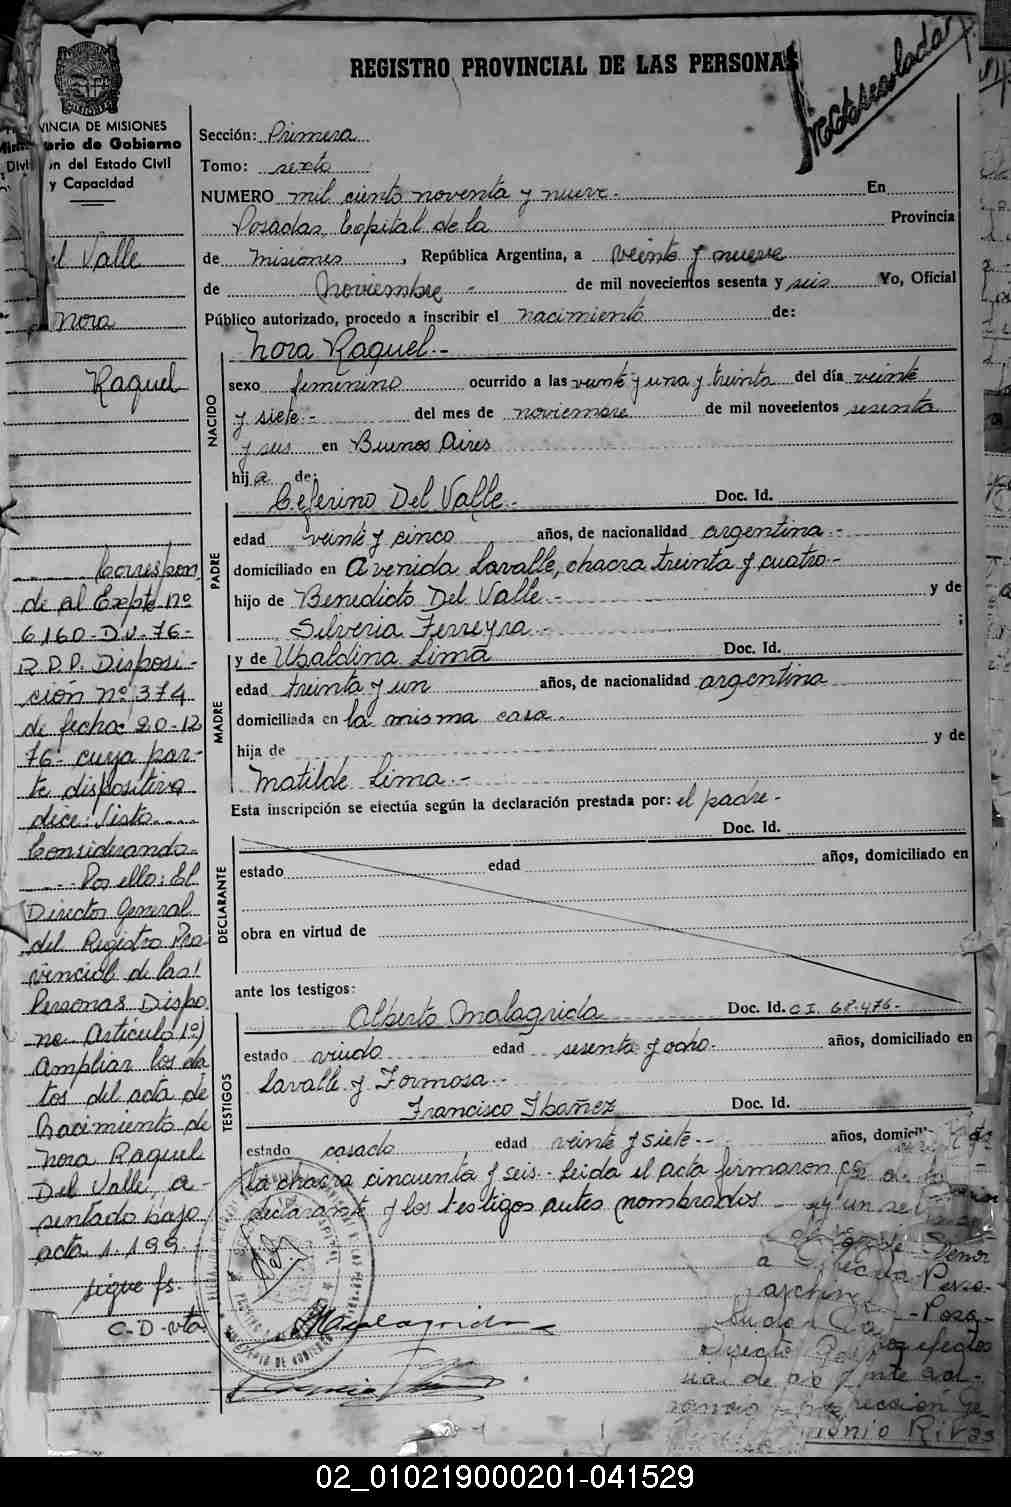 REGISTRO PROVINCIAL DE LAS PERSONAS
VINCIA DE MISIONES
erio de Gobierno
n del Estado Civil
y Capacidad
el Valle
Nora
Raquel
Correspon
de al Expte nº
6160-D.V.-76-
R.D.P. Disposi-
ción nº 374
de fecha 20-12
76- cuya par-
te dispositiva
dice: Visto....
Considerando..
.... Por ello: El
Director General
del Registro Pro-
vincial de las
Personas Dispo
ne Artículo 1º)
Ampliar los da
tos del acta de
Nacimiento de
Nora Raquel
Del Valle, a-
sentado bajo
acta 1.199.
sigue fs.
C-D-vta
Sección: Primera
Tomo: sexto
NUMERO mil ciento noventa y nueve.- En
Posadas, Capital de la Provincia
de Misiones, República Argentina, a veinte y nueve
de Noviembre - de mil novecientos sesenta y seis Yo, Oficial
Público autorizado, procedo a inscribir el nacimiento de:
Nora Raquel.-
NACIDO
sexo femenino ocurrido a las veinte y una y treinta del día veinte
y siete.- del mes de noviembre de mil novecientos sesenta
y seis en Buenos Aires
hija de:
Ceferino Del Valle.- Doc. Id.
PADRE
edad veinte y cinco años, de nacionalidad argentina.-
domiciliado en Avenida Lavalle, chacra treinta y cuatro.-
hijo de Benedicto Del Valle.- y de
Silveria Ferreyra.- ;
y de Ubaldina Lima Doc. Id.
MADRE
edad treinta y un años, de nacionalidad argentina
domiciliada en la misma casa.
hija de y de
Matilde Lima.-
Esta inscripción se efectúa según la declaración prestada por: el padre.-
Doc. Id.
DECLARANTE
estado edad años, domiciliado en
obra en virtud de
ante los testigos:
Alberto Malagrida Doc. Id. C I. 68.476.-
TESTIGOS
estado viudo edad sesenta y ocho. años, domiciliado en
Lavalle y Formosa.-
Francisco Ibañez Doc. Id.
estado casado edad veinte y siete.- años, domicili
la chacra cincuenta y seis. Leida el acta firmaron
declarante y los testigos antes nombrados
Malagrida
02_010219000201-041529